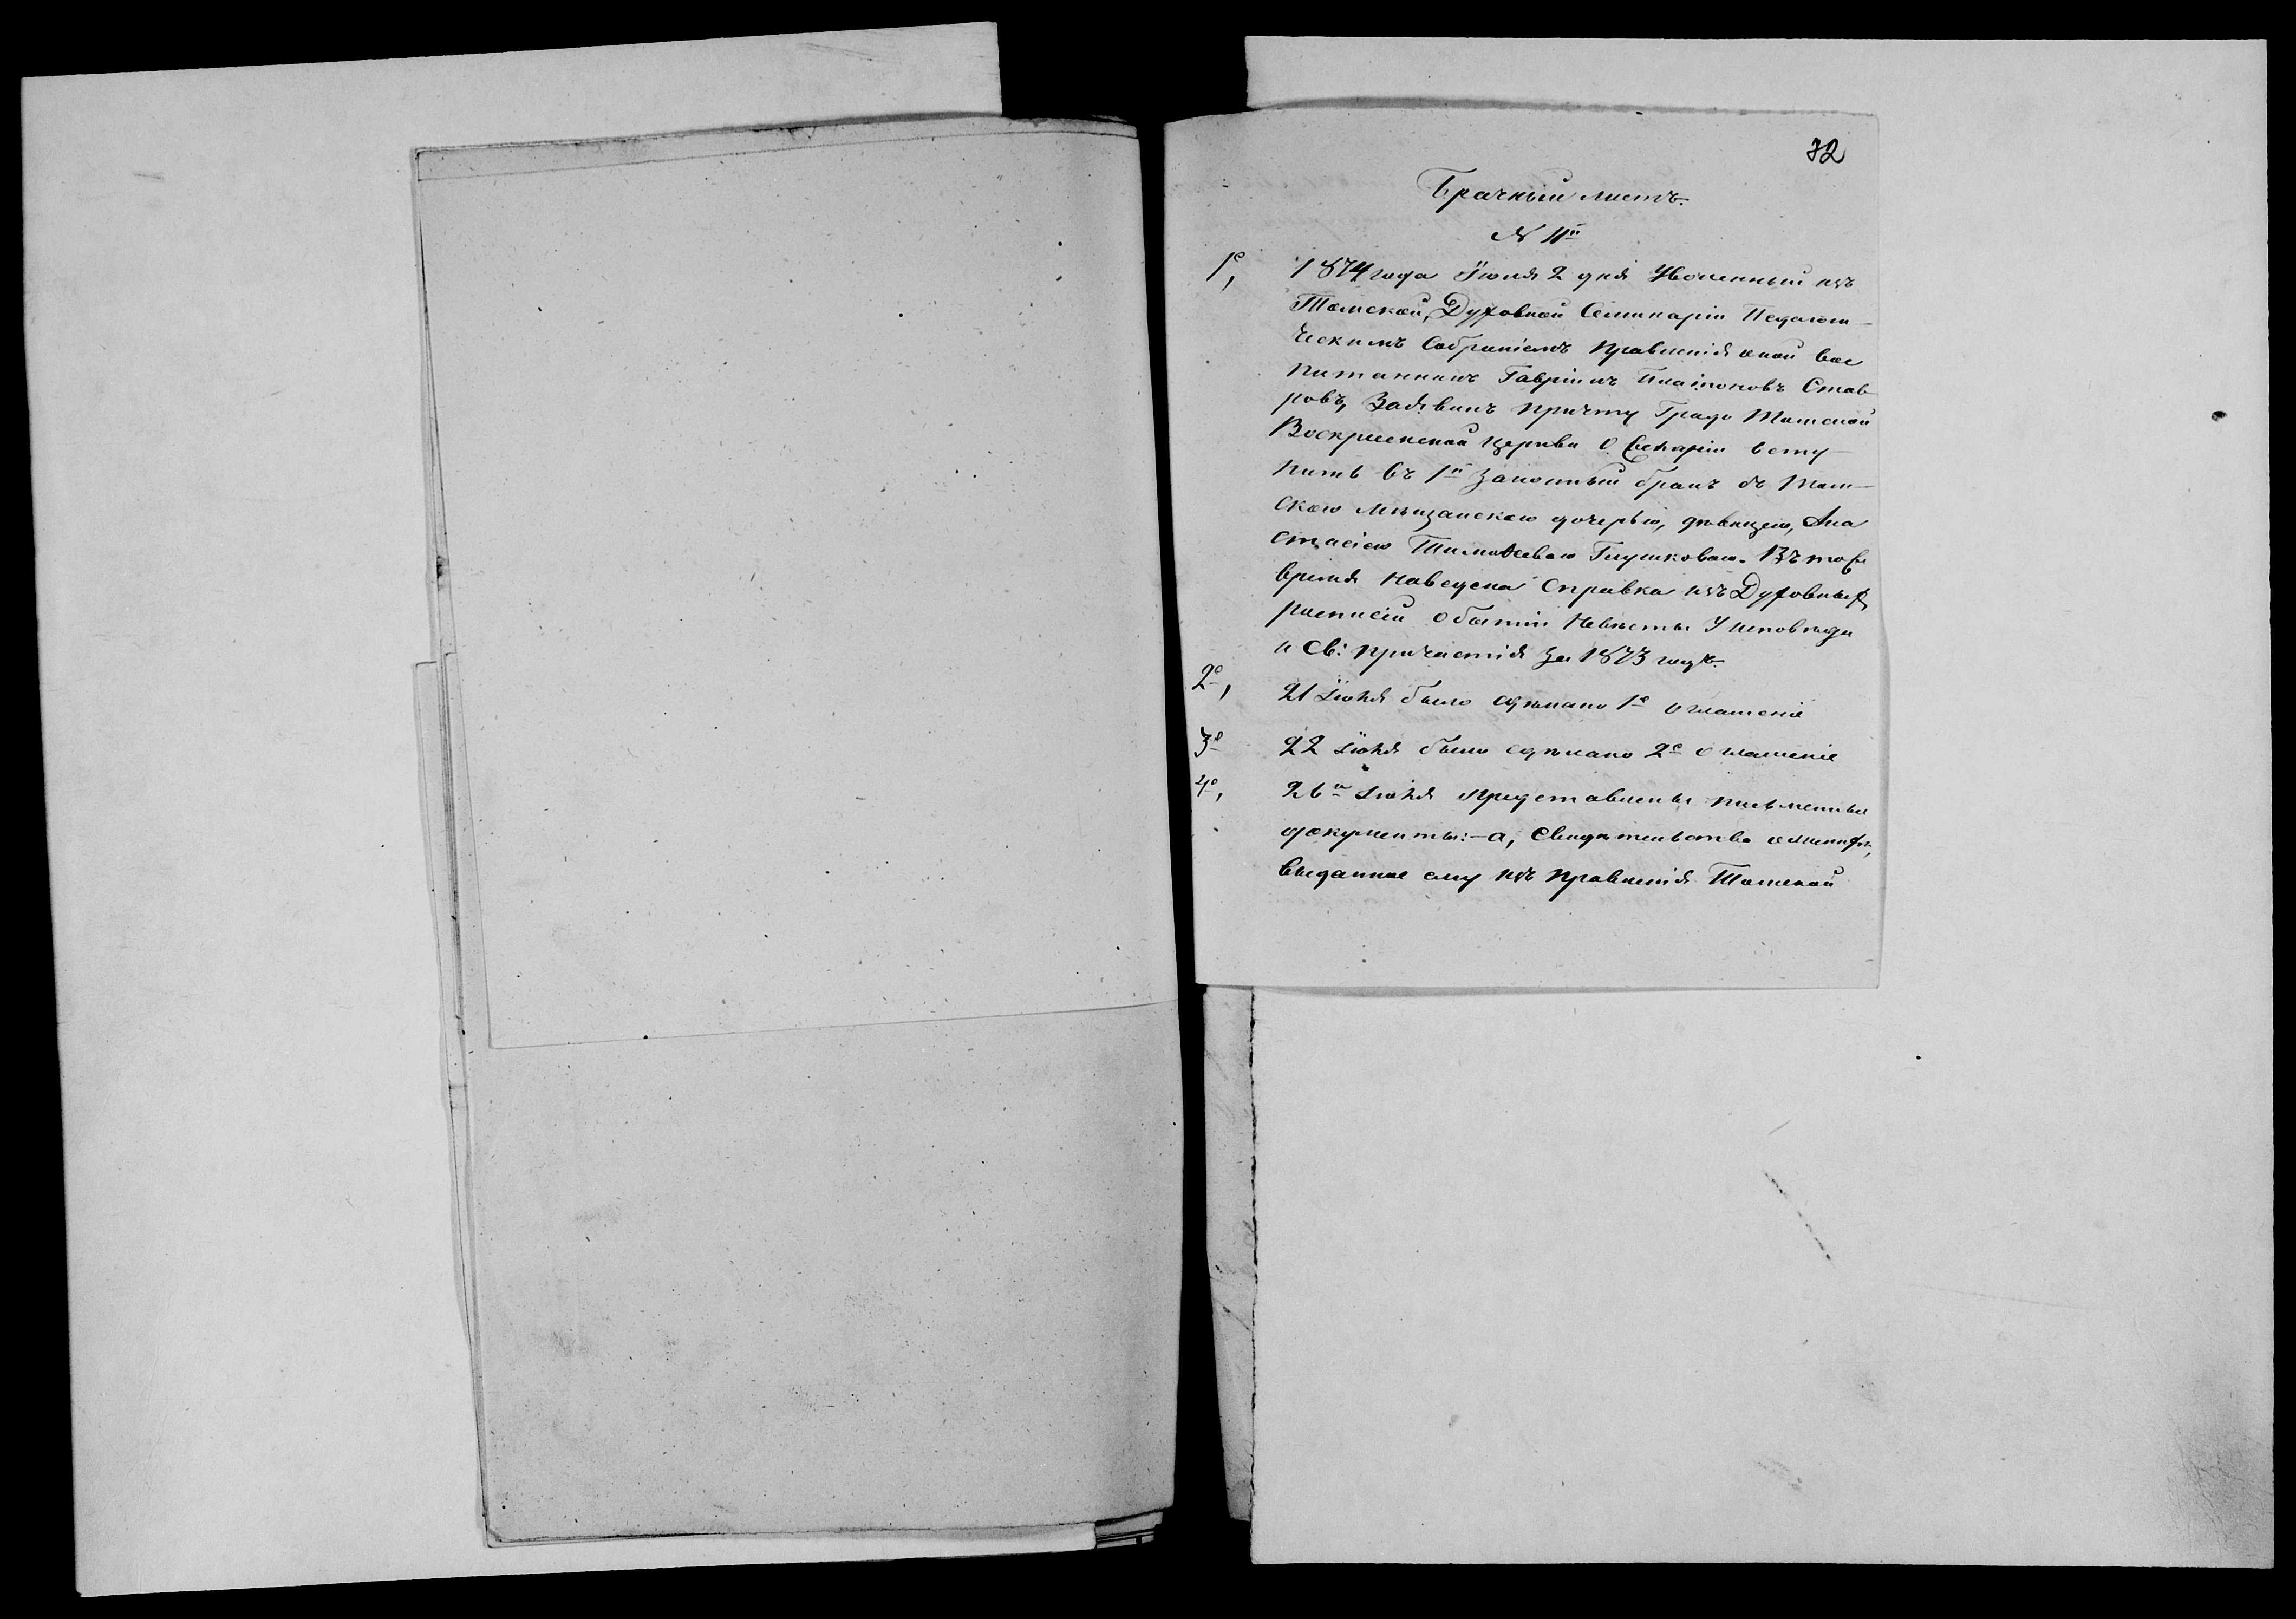 32
Брачный листъ.
№ 11й
1е, 1874 года Іюня 2 дня Уволенный изъ
Томской, Духовной Семинаріи Педагоги-
ческимъ Собраніемъ правленія оной вос
питанникъ Гавріилъ Платоновъ Став
ровъ, Заявилъ причту Градо Томской
Воскресенской церкви о желаніи всту-
пить въ 1й законный бракъ съ Том-
скою мѣщанскою дочерью, дѣвицею, Ана
стасіею Тимоѳеевою Глушковою. Въ тоже
время наведена справка изъ Духовныхъ
росписей о бытіи Невѣсты У исповѣди
и Св: причастія за 1873 годъ.
2е, 21 Іюня было сдѣлано 1е оглашеніе
3е 22 Іюня было сдѣлано 2е оглашеніе
4е, 26го Іюня представлены письменные
документы:-а, Свидѣтельство о женихѣ,
выданное ему изъ правленія Томской